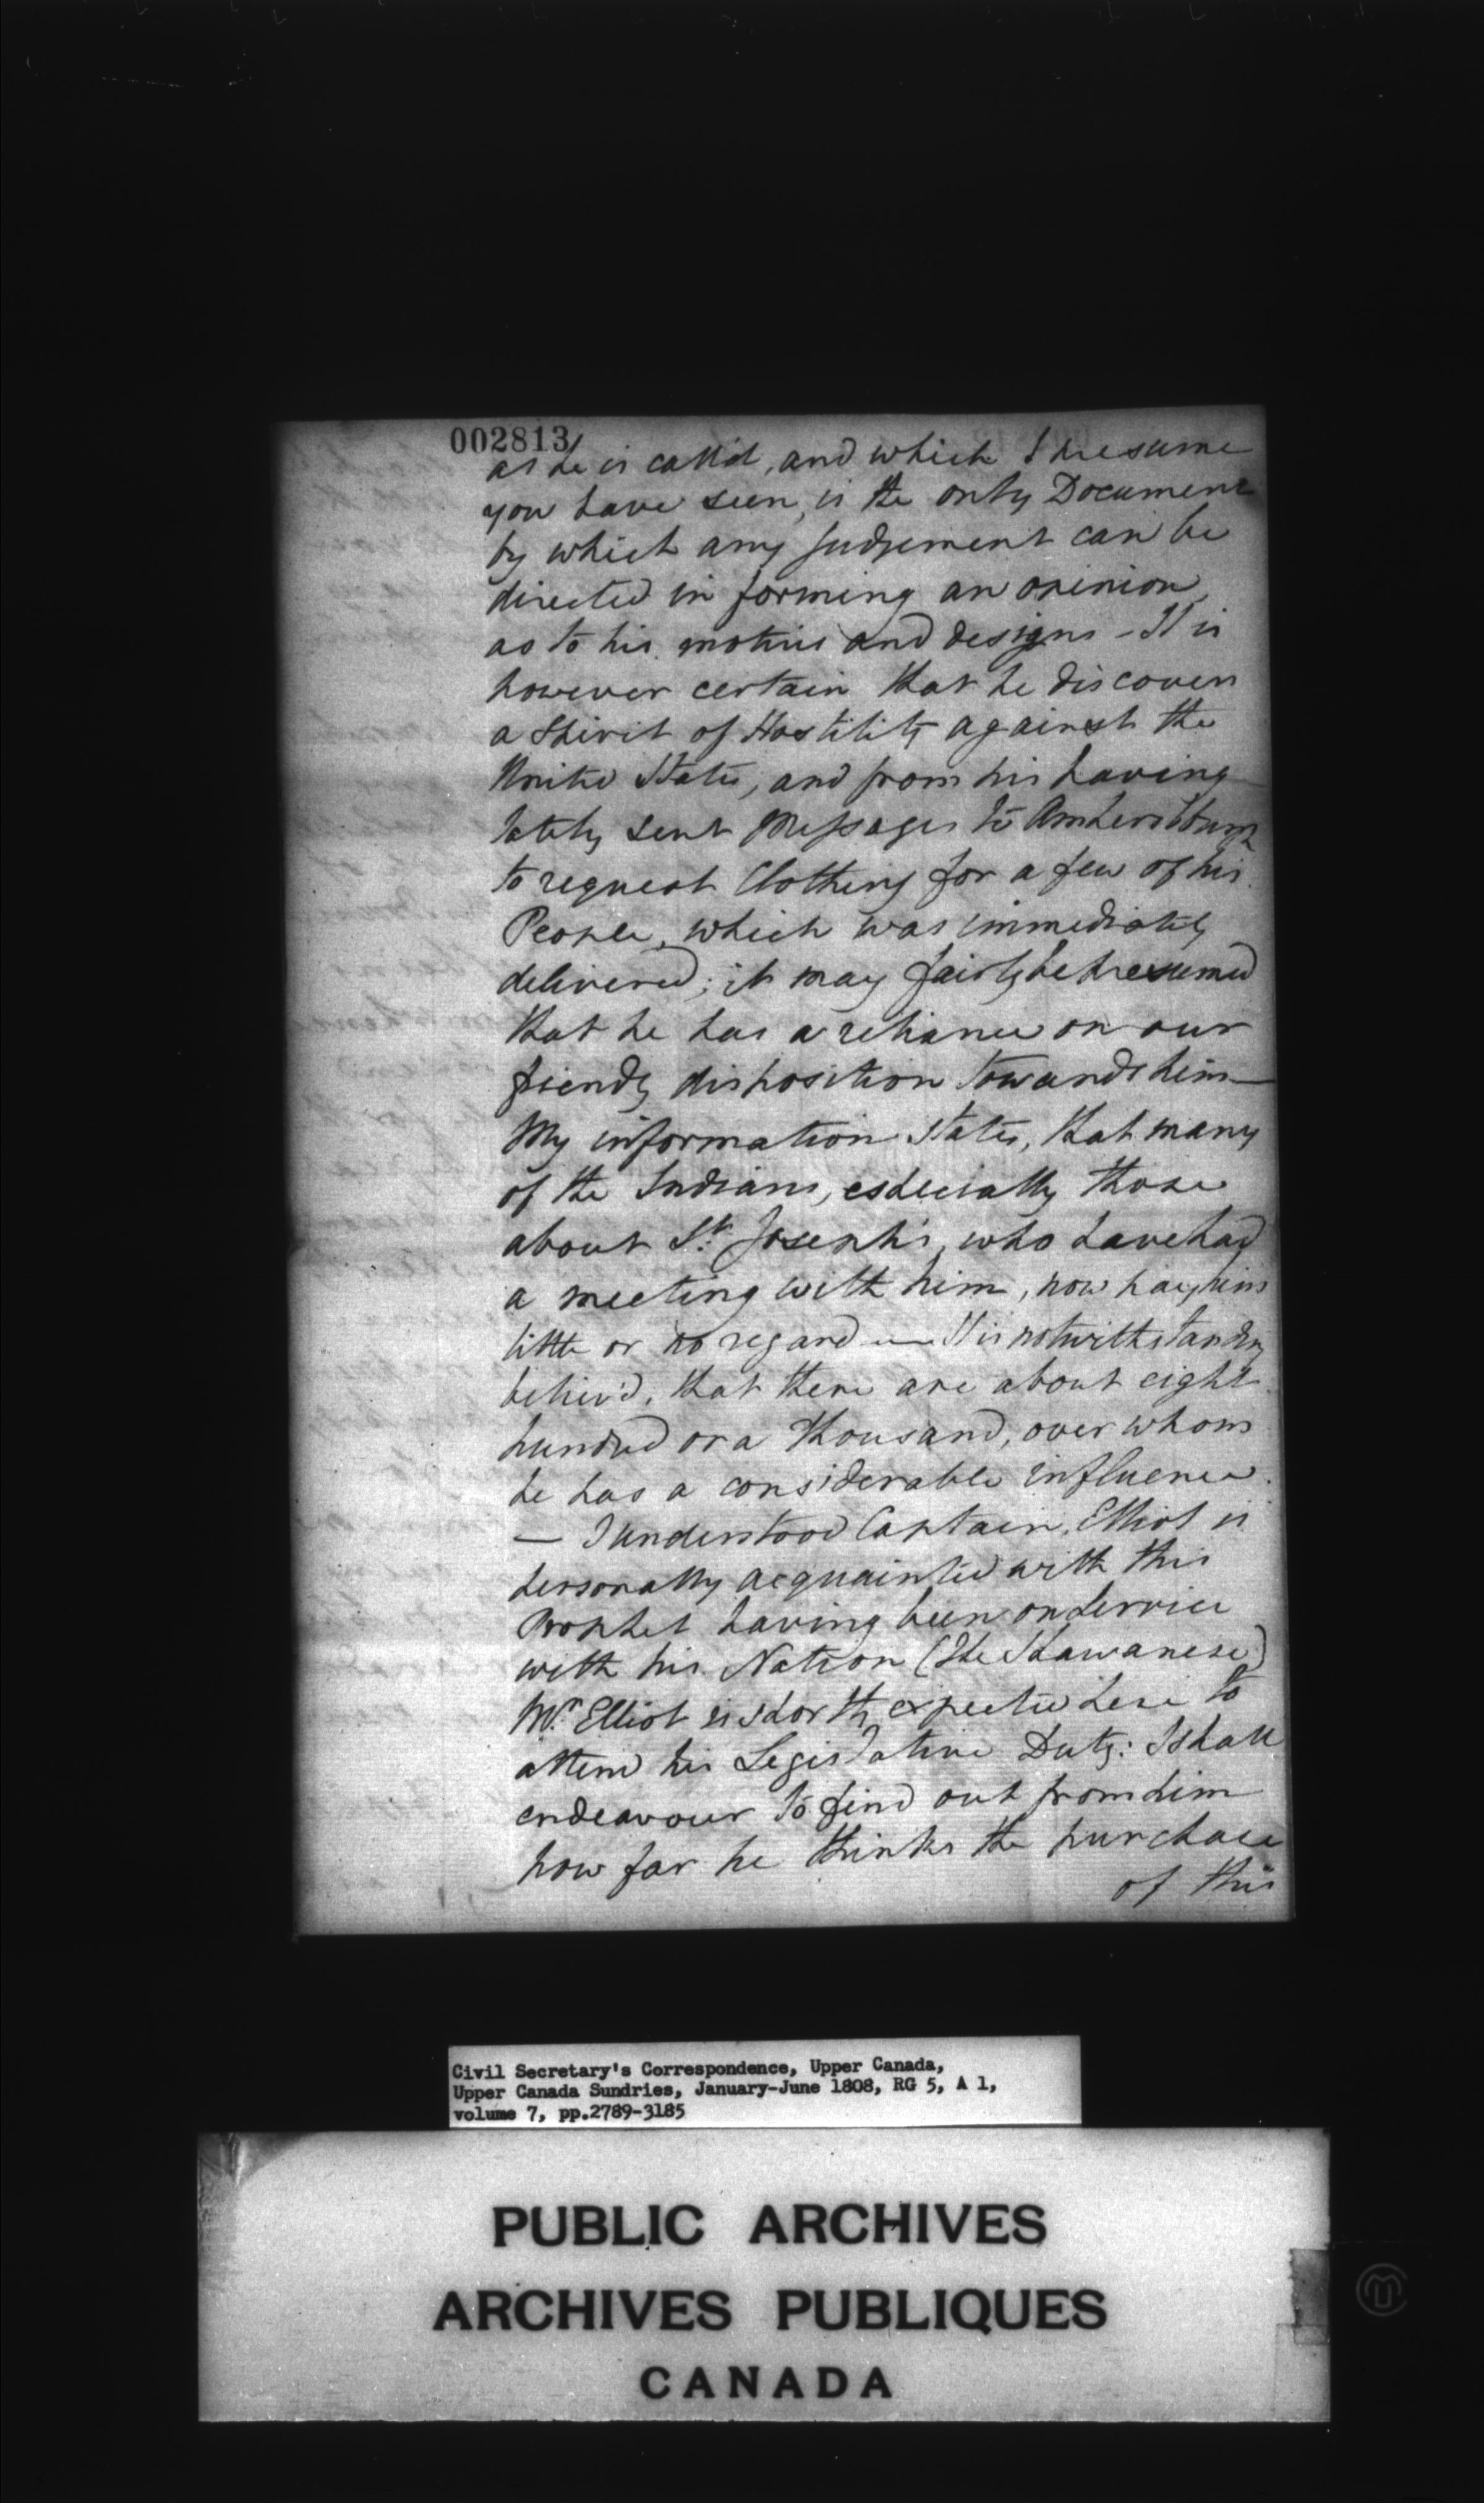 002813
as he is call'd, and which I presume
you have seen, is the only Document
by which any Judgement can be
directed in forming an opinion,
as to his motives and designs - It is
however certain that he discovers
a Spirit of Hostility against the
United States, and from his having
lately sent Messages to Amherstburg
to request Clothing for a few of his
People, which was immediately
delivered; it may fairly be presumed
that he has a reliance on our
friendly disposition towards him —
My information states, that many
of the Indians, especially those
about St. Joseph's, who have had
a meeting with him, now pay him
little or no regard — It is notwithstanding
believ'd, that there are about eight
hundred or a thousand, over whom
he has a considerable influence.
— I understood Captain Elliot is
personally acquainted with this
Prophet having been on Service
with his Nation (The Shawanese)
Mr. Elliot is shortly expected here to
attend his Legislative Duty: I shall
endeavour to find out from him
how far he thinks the purchase
of this
Civil Secretary's Correspondence, Upper Canada,
Upper Canada Sundries, January-June 1808, RG 5, A 1,
volume 7, pp.2789-3185
PUBLIC ARCHIVES
ARCHIVES PUBLIQUES
CANADA